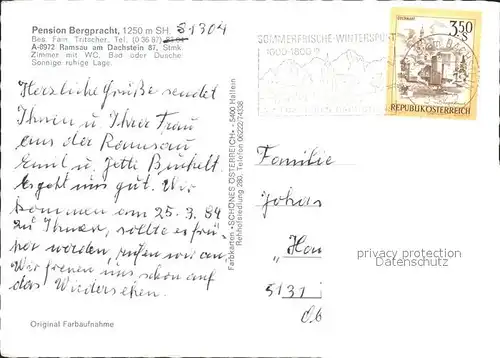 Pension Bergpracht, 1250 m SH.
81304
Bes. Fam. Tritscher. Tel. (0 36 87)
A-8972 Ramsau am Dachstein 87, Stmk.
Zimmer mit WC, Bad oder Dusche.
Sonnige ruhige Lage.
SOMMERFRISCHE-WINTERSPORT
3.50
REPUBLIK ÖSTERREICH
Herzliche Grüße sendet
Ihnen u. Ihrer Frau
aus der Ramsau
Emil u. Jetti
Es geht uns gut. Wir
kommen am 25.3.84
zu Ihnen, sollte es frü-
her werden, rufen wir an.
Wir freuen uns schon auf
das Wiedersehen.
Farbkarten »SCHÖNES ÖSTERREICH« - 5400 Hallein
Rehhofsiedlung 280, Telefon 06222/74338
Familie
Johas
"Hau
5131
privacy protection
Datenschutz
Original Farbaufnahme